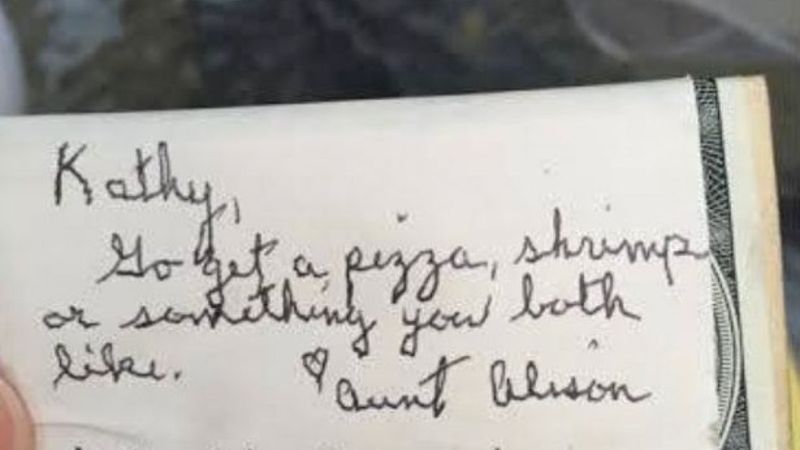 Kathy,
Go get a pizza, shrimp
or something you both
like. ♡ Aunt Alison